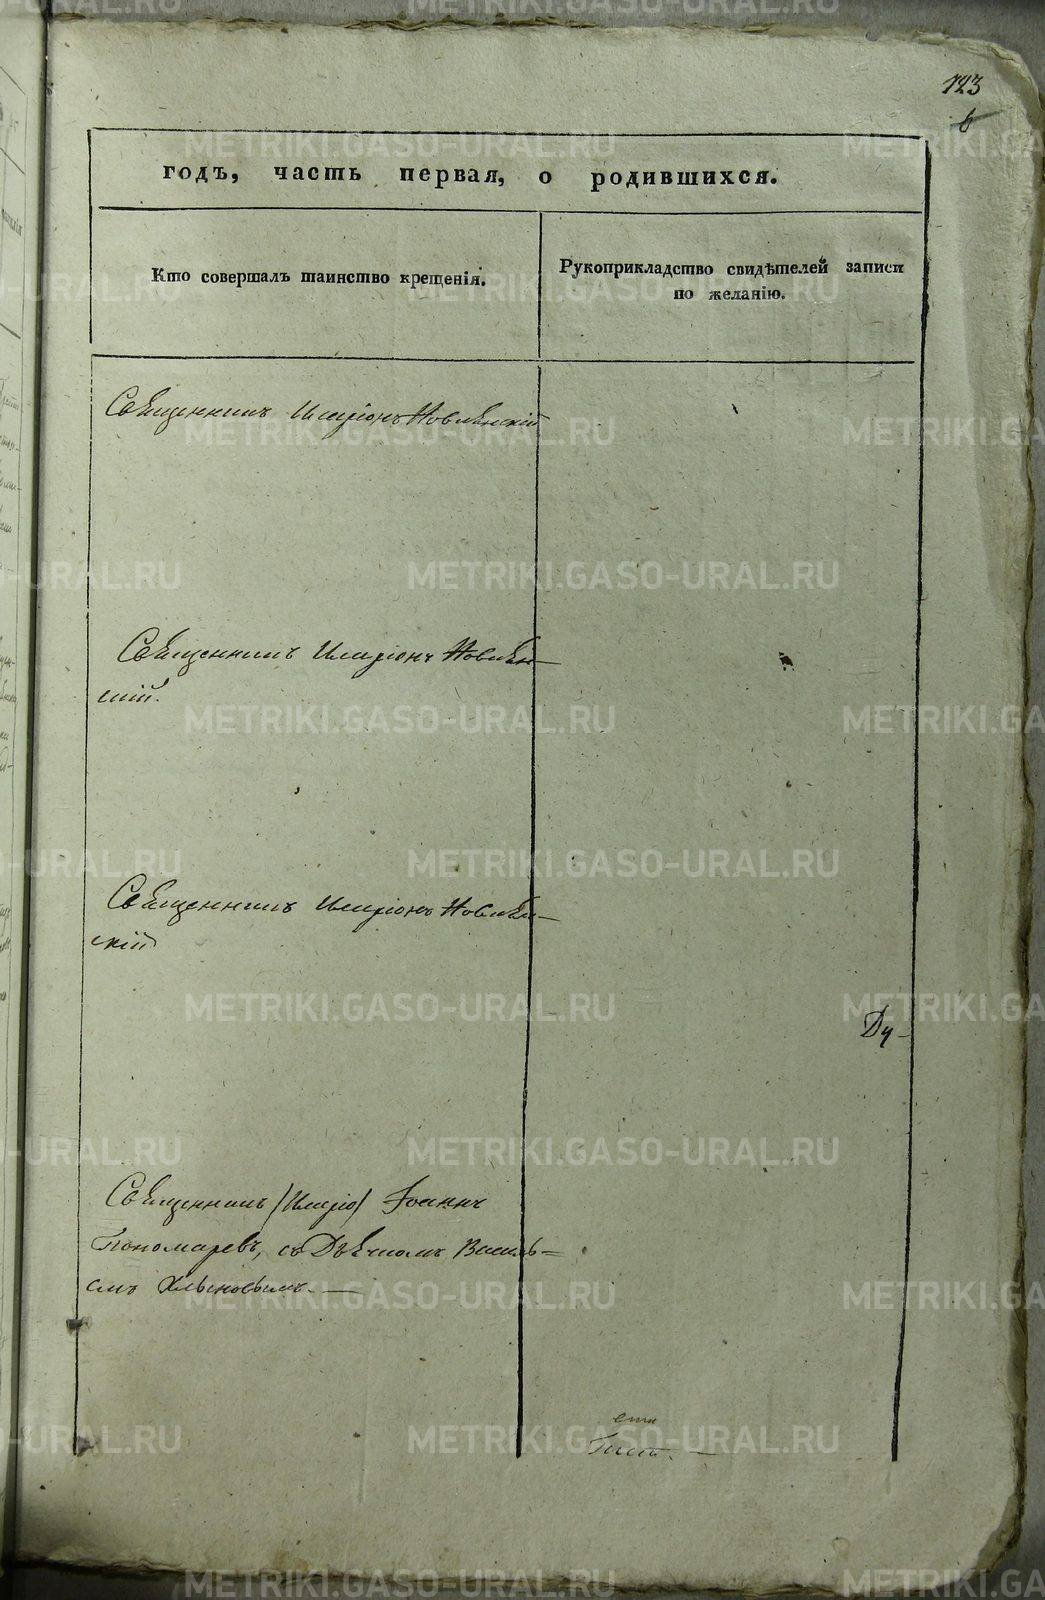 123
6
годъ, часть первая, о родившихся.
Кто совершалъ таинство крещенія.
Рукоприкладство свидѣтелей записи
по желанію.
Священникъ Иларіонъ Новлѣнскій
Священникъ Иларіонъ Новлѣн-
скій.
Священникъ Иларіонъ Новлѣн-
скій
Ду-
Священникъ (Иларіо) Іоаннъ
Пономаревъ, съ Дьячкомъ Василь-
емъ Хлыновымъ.
METRIKI.GASO-URAL.RU